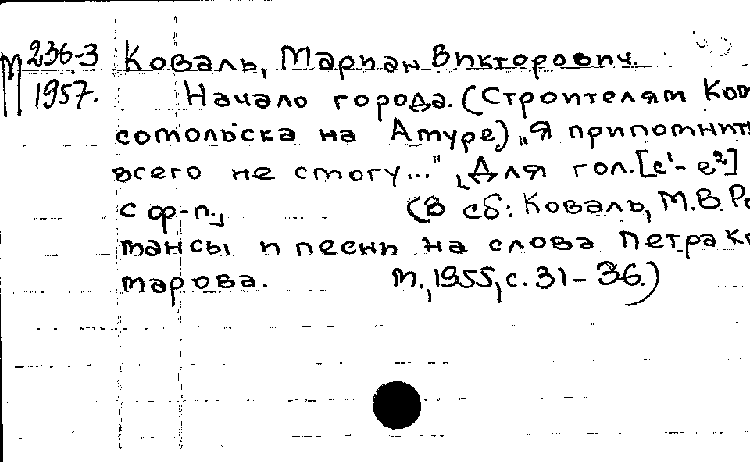 М 236-3 Коваль, Мариан Викторович.
1957. Начало города. (Строителям Ком
сомольска на Амуре) „Я припомнить
всего не смогу...", Для гол. [c¹-e²]
с ф-п., (В сб: Коваль, М.В. Ро
мансы и песни на слова Петра Ко
марова. М., 1955, с. 31-36.)